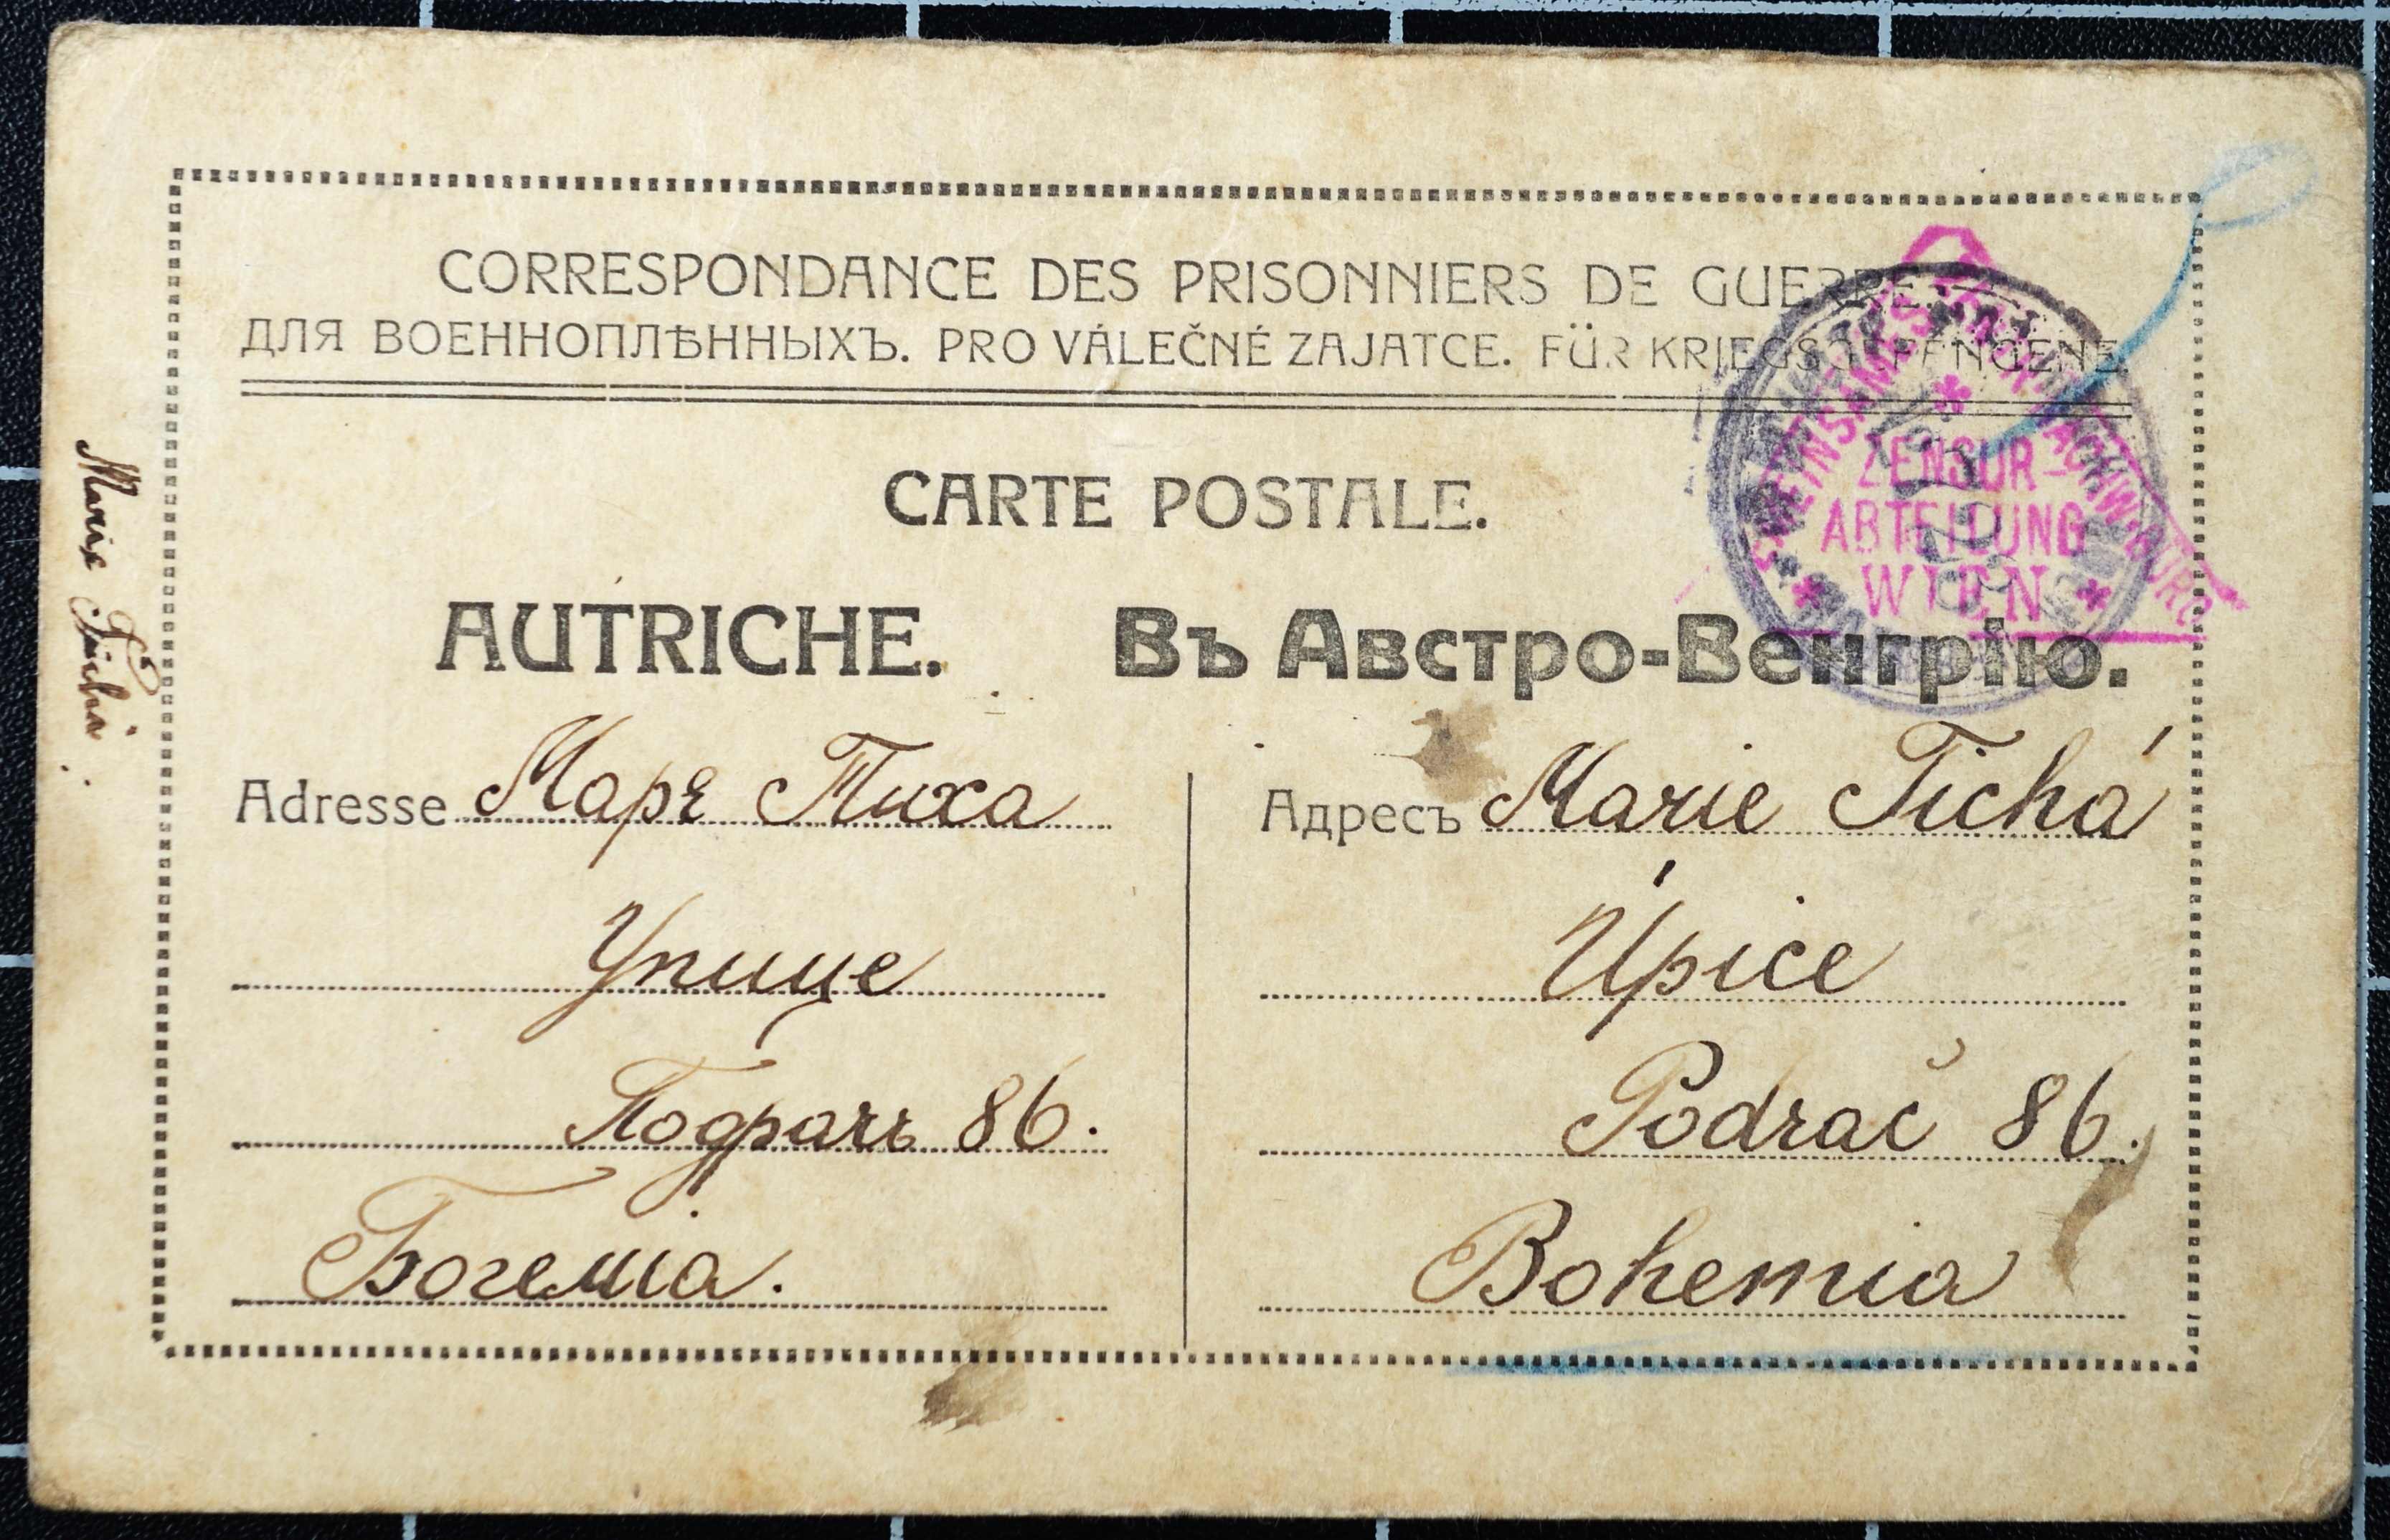 CORRESPONDANCE DES PRISONNIERS DE GUERRE.
ДЛЯ ВОЕННОПЛѢННЫХЪ. PRO VÁLEČNÉ ZAJATCE. FÜR KRIEGSGEFANGENE.
CARTE POSTALE.
AUTRICHE. Въ Австро-Венгрію.
Adresse Маре Тиха
Упице
Подрачъ 86.
Богеміа.
Адресъ Marie Tichá
Úpice
Podrač 86.
Bohemia
ZENSUR-
ABTEILUNG
WIEN
Marie Tichá